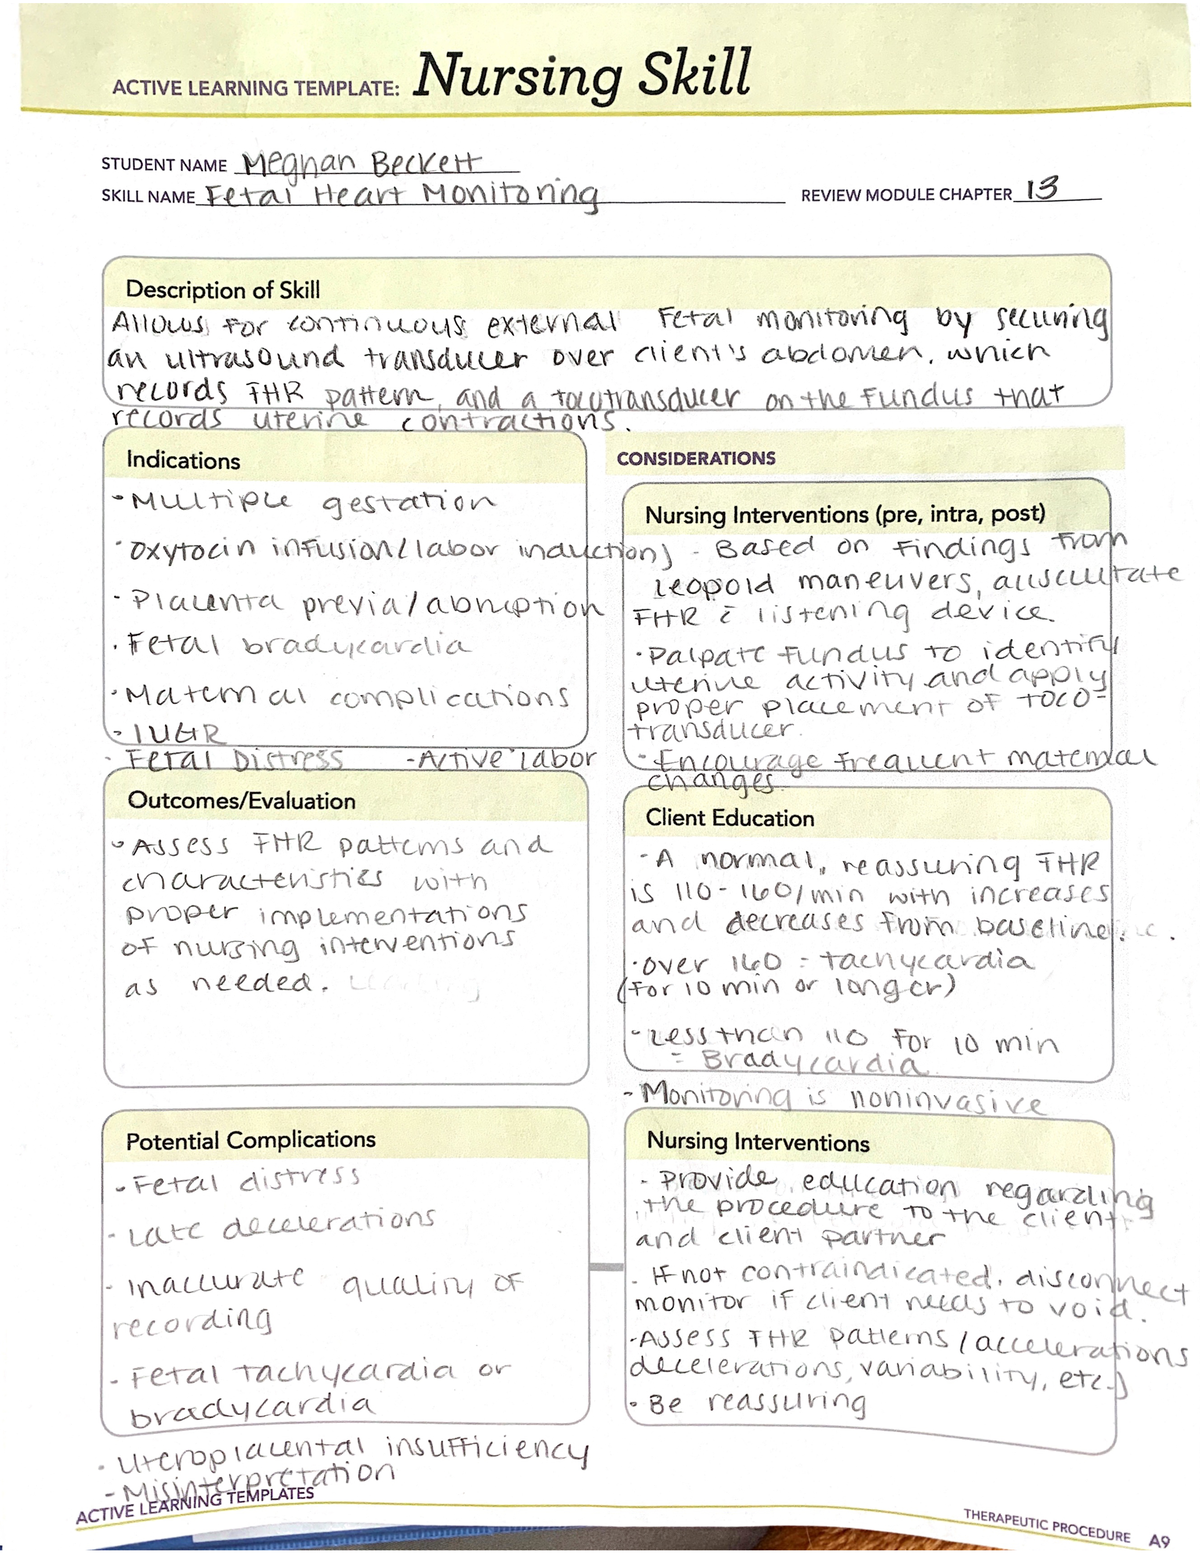 ACTIVE LEARNING TEMPLATE: Nursing Skill
STUDENT NAME Meghan Beckett
SKILL NAME Fetal Heart Monitoring
REVIEW MODULE CHAPTER 13
Description of Skill
Allows for continuous external Fetal monitoring by securing
an ultrasound transducer over client's abdomen, which
records FHR pattern, and a tocotransducer on the Fundus that
records uterine contractions.
Indications
- Multiple gestation
- Oxytocin infusion (labor induction)
- Placenta previa/abruption
- Fetal bradycardia
- Maternal complications
- IUGR
- Fetal Distress -Active labor
CONSIDERATIONS
Nursing Interventions (pre, intra, post)
- Based on Findings from
leopold maneuvers, auscultate
FHR c̄ listening device.
- Palpate fundus to identify
uterine activity and apply
proper placement of toco-
transducer.
- Encourage frequent maternal
changes.
Outcomes/Evaluation
- Assess FHR patterns and
characteristics with
proper implementations
of nursing interventions
as needed.
Client Education
- A normal, reassuring FHR
is 110-160/min with increases
and decreases from baseline.
- over 160 = tachycardia
(for 10 min or longer)
- Less than 110 for 10 min
= Bradycardia
- Monitoring is noninvasive
Potential Complications
- Fetal distress
- Late decelerations
- Inaccurate quality of
recording
- Fetal tachycardia or
bradycardia
- Uteroplacental insufficiency
- Misinterpretation
Nursing Interventions
- Provide education regarding
the procedure to the client
and client partner
- If not contraindicated, disconnect
monitor if client needs to void.
- Assess FHR patterns (accelerations
decelerations, variability, etc.)
- Be reassuring
ACTIVE LEARNING TEMPLATES
THERAPEUTIC PROCEDURE A9